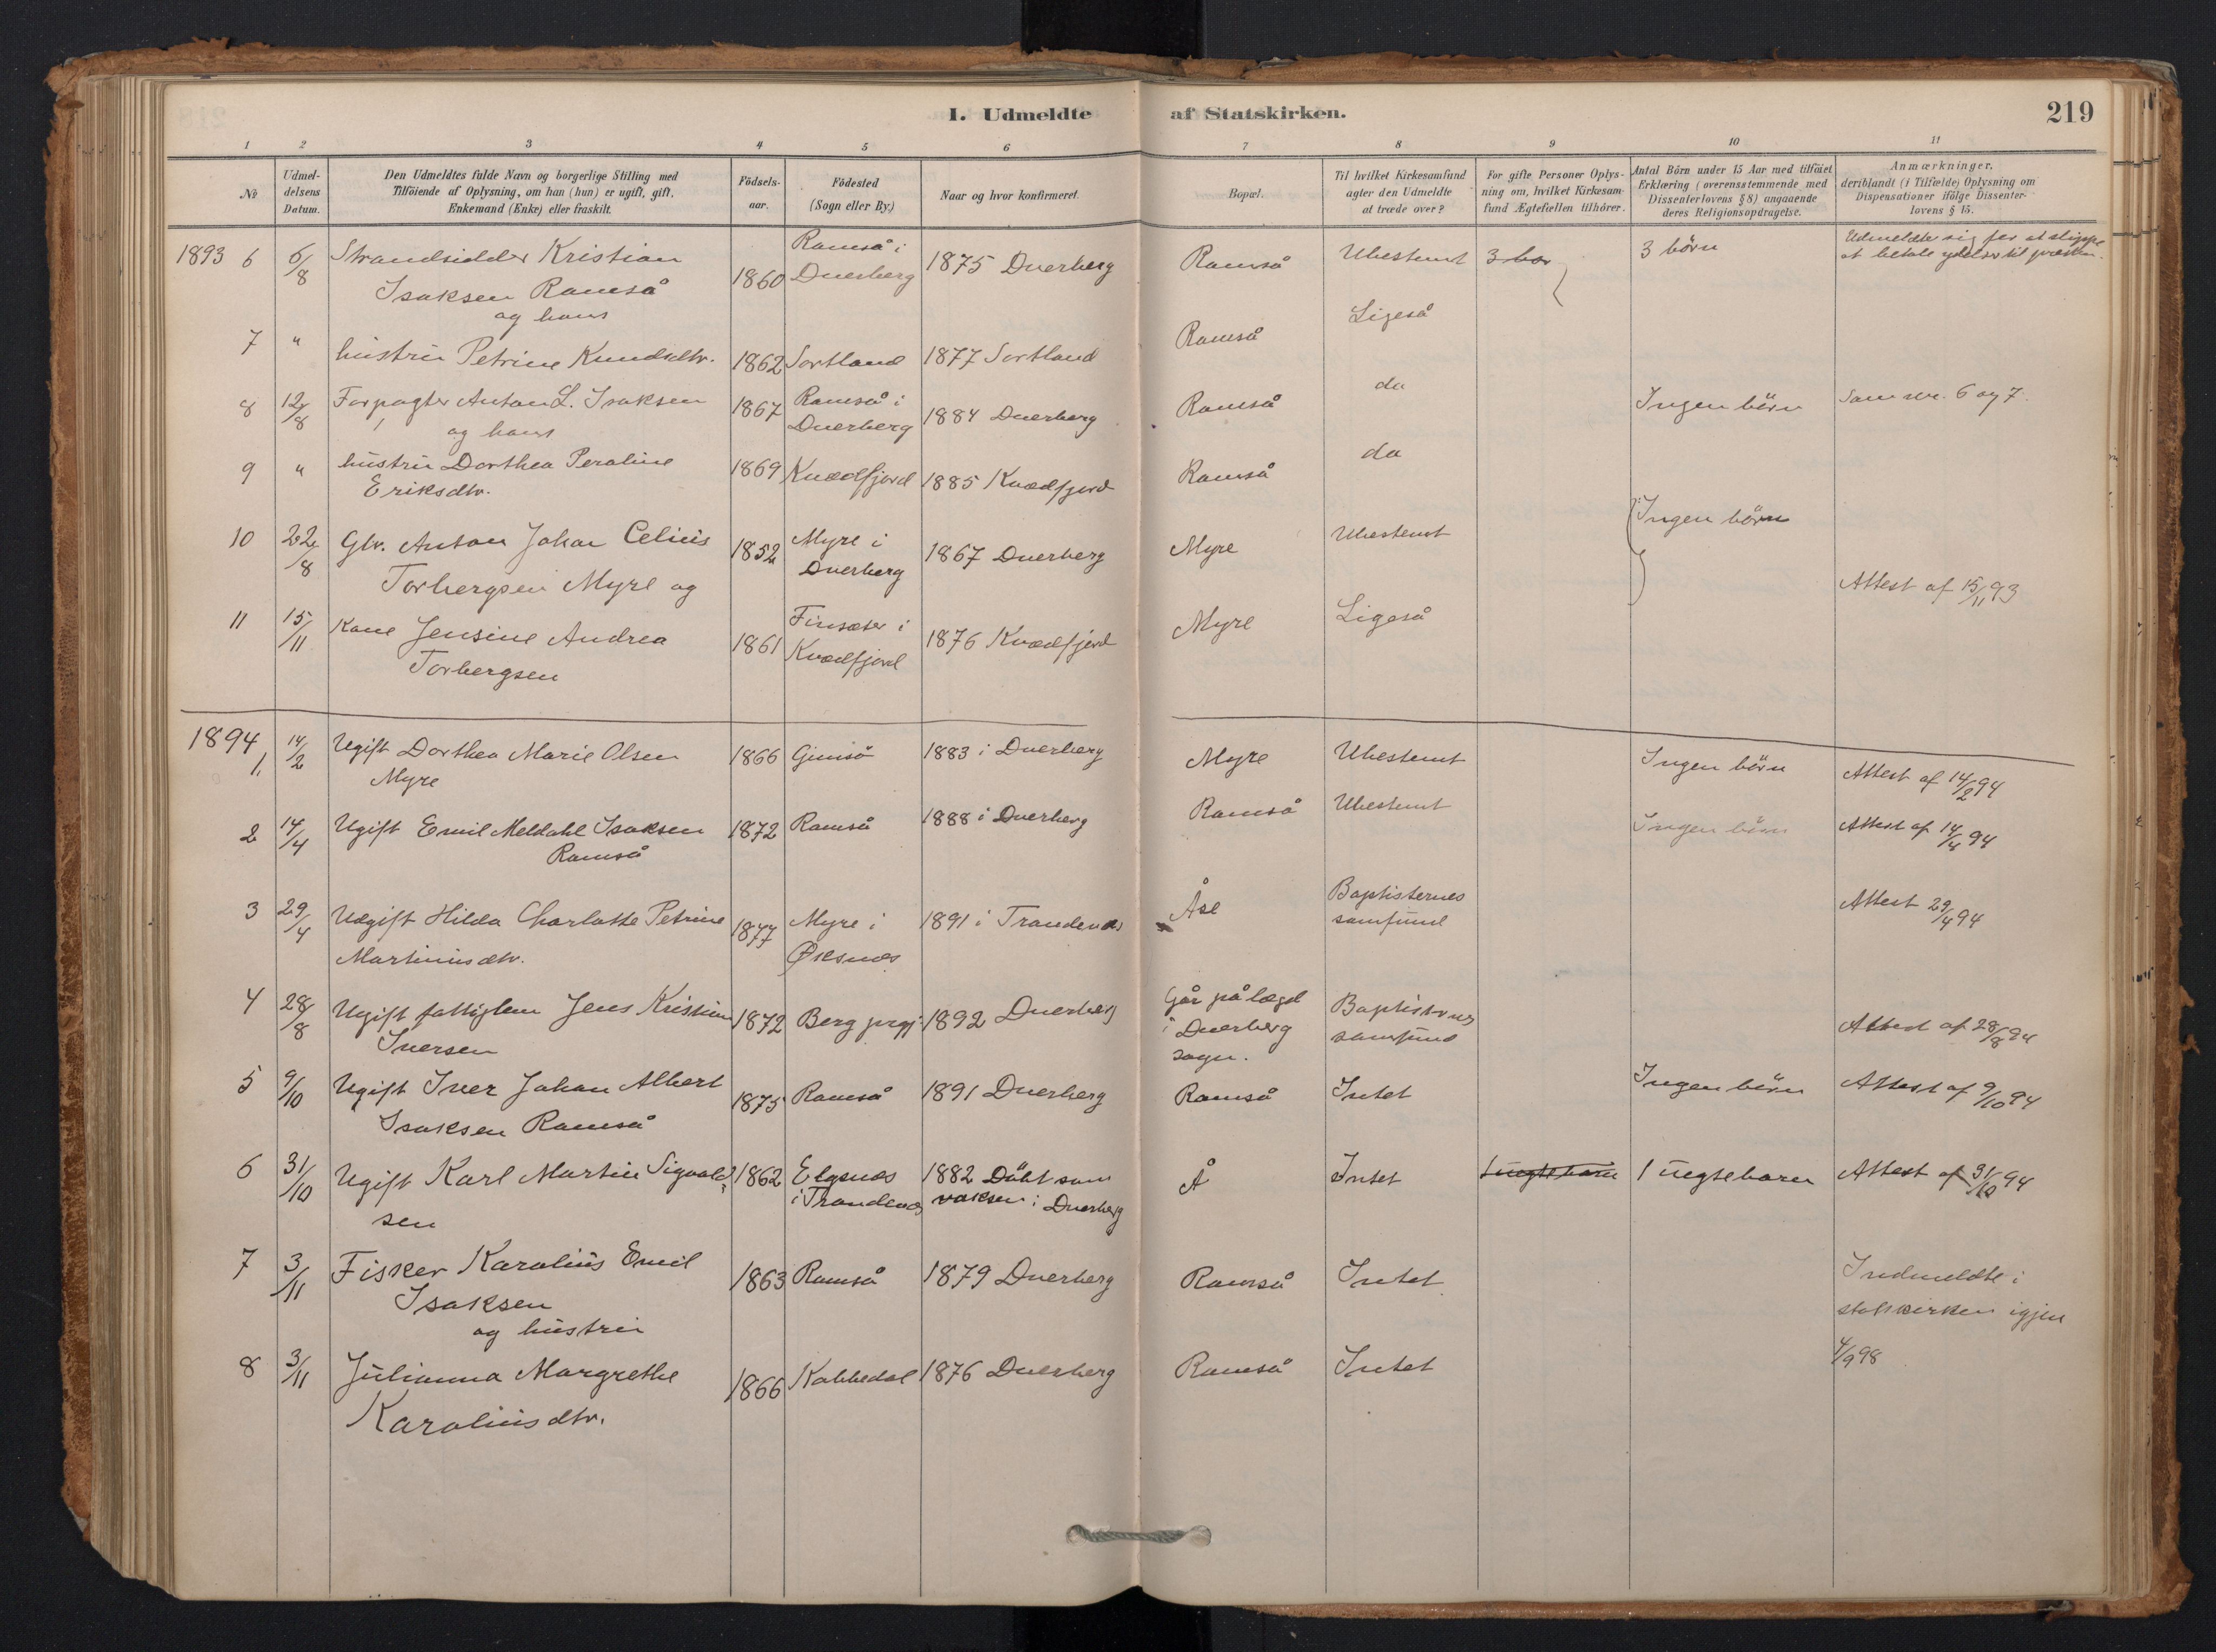 I. Udmeldte af Statskirken. 219
1 2 3 4 5 6 7 8 9 10 11
No
Udmeldelsens Datum.
Den Udmeldtes fulde Navn og borgerlige Stilling med
Tilföiende af Oplysning, om han (hun) er ugift, gift,
Enkemand (Enke) eller fraskilt.
Födselsaar.
Födested
(Sogn eller By.)
Naar og hvor konfirmeret.
Bopæl.
Til hvilket Kirkesamfund
agter den Udmeldte
at træde over?
For gifte Personer Oplys-
ning om, hvilket Kirkesam-
fund Ægtefællen tilhörer.
Antal Börn under 15 Aar med tilföiet
Erklæring (overensstemmende med
Dissenterlovens § 8) angaaende
deres Religionsopdragelse.
Anmærkninger,
deriblandt (i Tilfælde) Oplysning om
Dispensationer ifölge Dissenter-
lovens § 15.
1893 6 6/8 Strandsidder Kristian Isaksen Ramså og hans 1860 Ramså i Dverberg 1875 Dverberg Ramså Ubestemt 3 bør 3 börn Udmeldte sig for at slippe at betale ydelser til præsten.
7 " hustru Petrine Knudsdtr. 1862 Sortland 1877 Sortland Ramså Ligeså
8 12/8 Forpagter Anton L. Isaksen og hans 1867 Ramså i Dverberg 1884 Dverberg Ramså do Ingen börn Som nr. 6 og 7.
9 " hustru Dorthea Peraline Eriksdtr. 1869 Kvædfjord 1885 Kvædfjord Ramså do
10 22/8 Gbr. Anton Johan Celius Torbergsen Myre og 1852 Myre i Dverberg 1867 Dverberg Myre Ubestemt Ingen börn
11 15/11 Kone Jensine Andrea Torbergsen 1861 Finsæter i Kvædfjord 1876 Kvædfjord Myre Ligeså Attest af 15/11 93
1894 1, 14/2 Ugift Dorthea Marie Olsen Myre 1866 Gimsö 1883 i Dverberg Myre Ubestemt Ingen börn Attest af 14/2 94
2 14/4 Ugift Emil Meldahl Isaksen Ramså 1872 Ramså 1888 i Dverberg Ramså Ubestemt Ingen börn Attest af 14/4 94
3 29/4 Udgift Hilda Charlotte Petrine Martinusdtr. 1877 Myre i Øksnes 1891 i Trandenæs Åse Baptisternes samfund Attest 29/4 94
4 28/8 Ugift fattiglem Jens Kristian Iversen 1872 Berg prgj. 1892 Dverberg Går på lægd i Dverberg sogn. Baptisternes samfund Attest af 28/8 94
5 9/10 Ugift Iver Johan Albert Isaksen Ramså 1875 Ramså 1891 Dverberg Ramså Intet Ingen börn Attest af 9/10 94
6 31/10 Ugift Karl Martin Sigvaldsen 1862 Elgsnes i Trandenes 1882 Döbt som voksen i Dverberg Å Intet 1 uegtebarn 1 uegtebarn Attest af 31/10 94
7 3/11 Fisker Karolius Emil Isaksen og hustru 1863 Ramså 1879 Dverberg Ramså Intet Indmeldte i statskirken igjen 4/9 98
8 3/11 Julianna Margrethe Karoliusdtr. 1866 Kobbedal 1876 Dverberg Ramså Intet